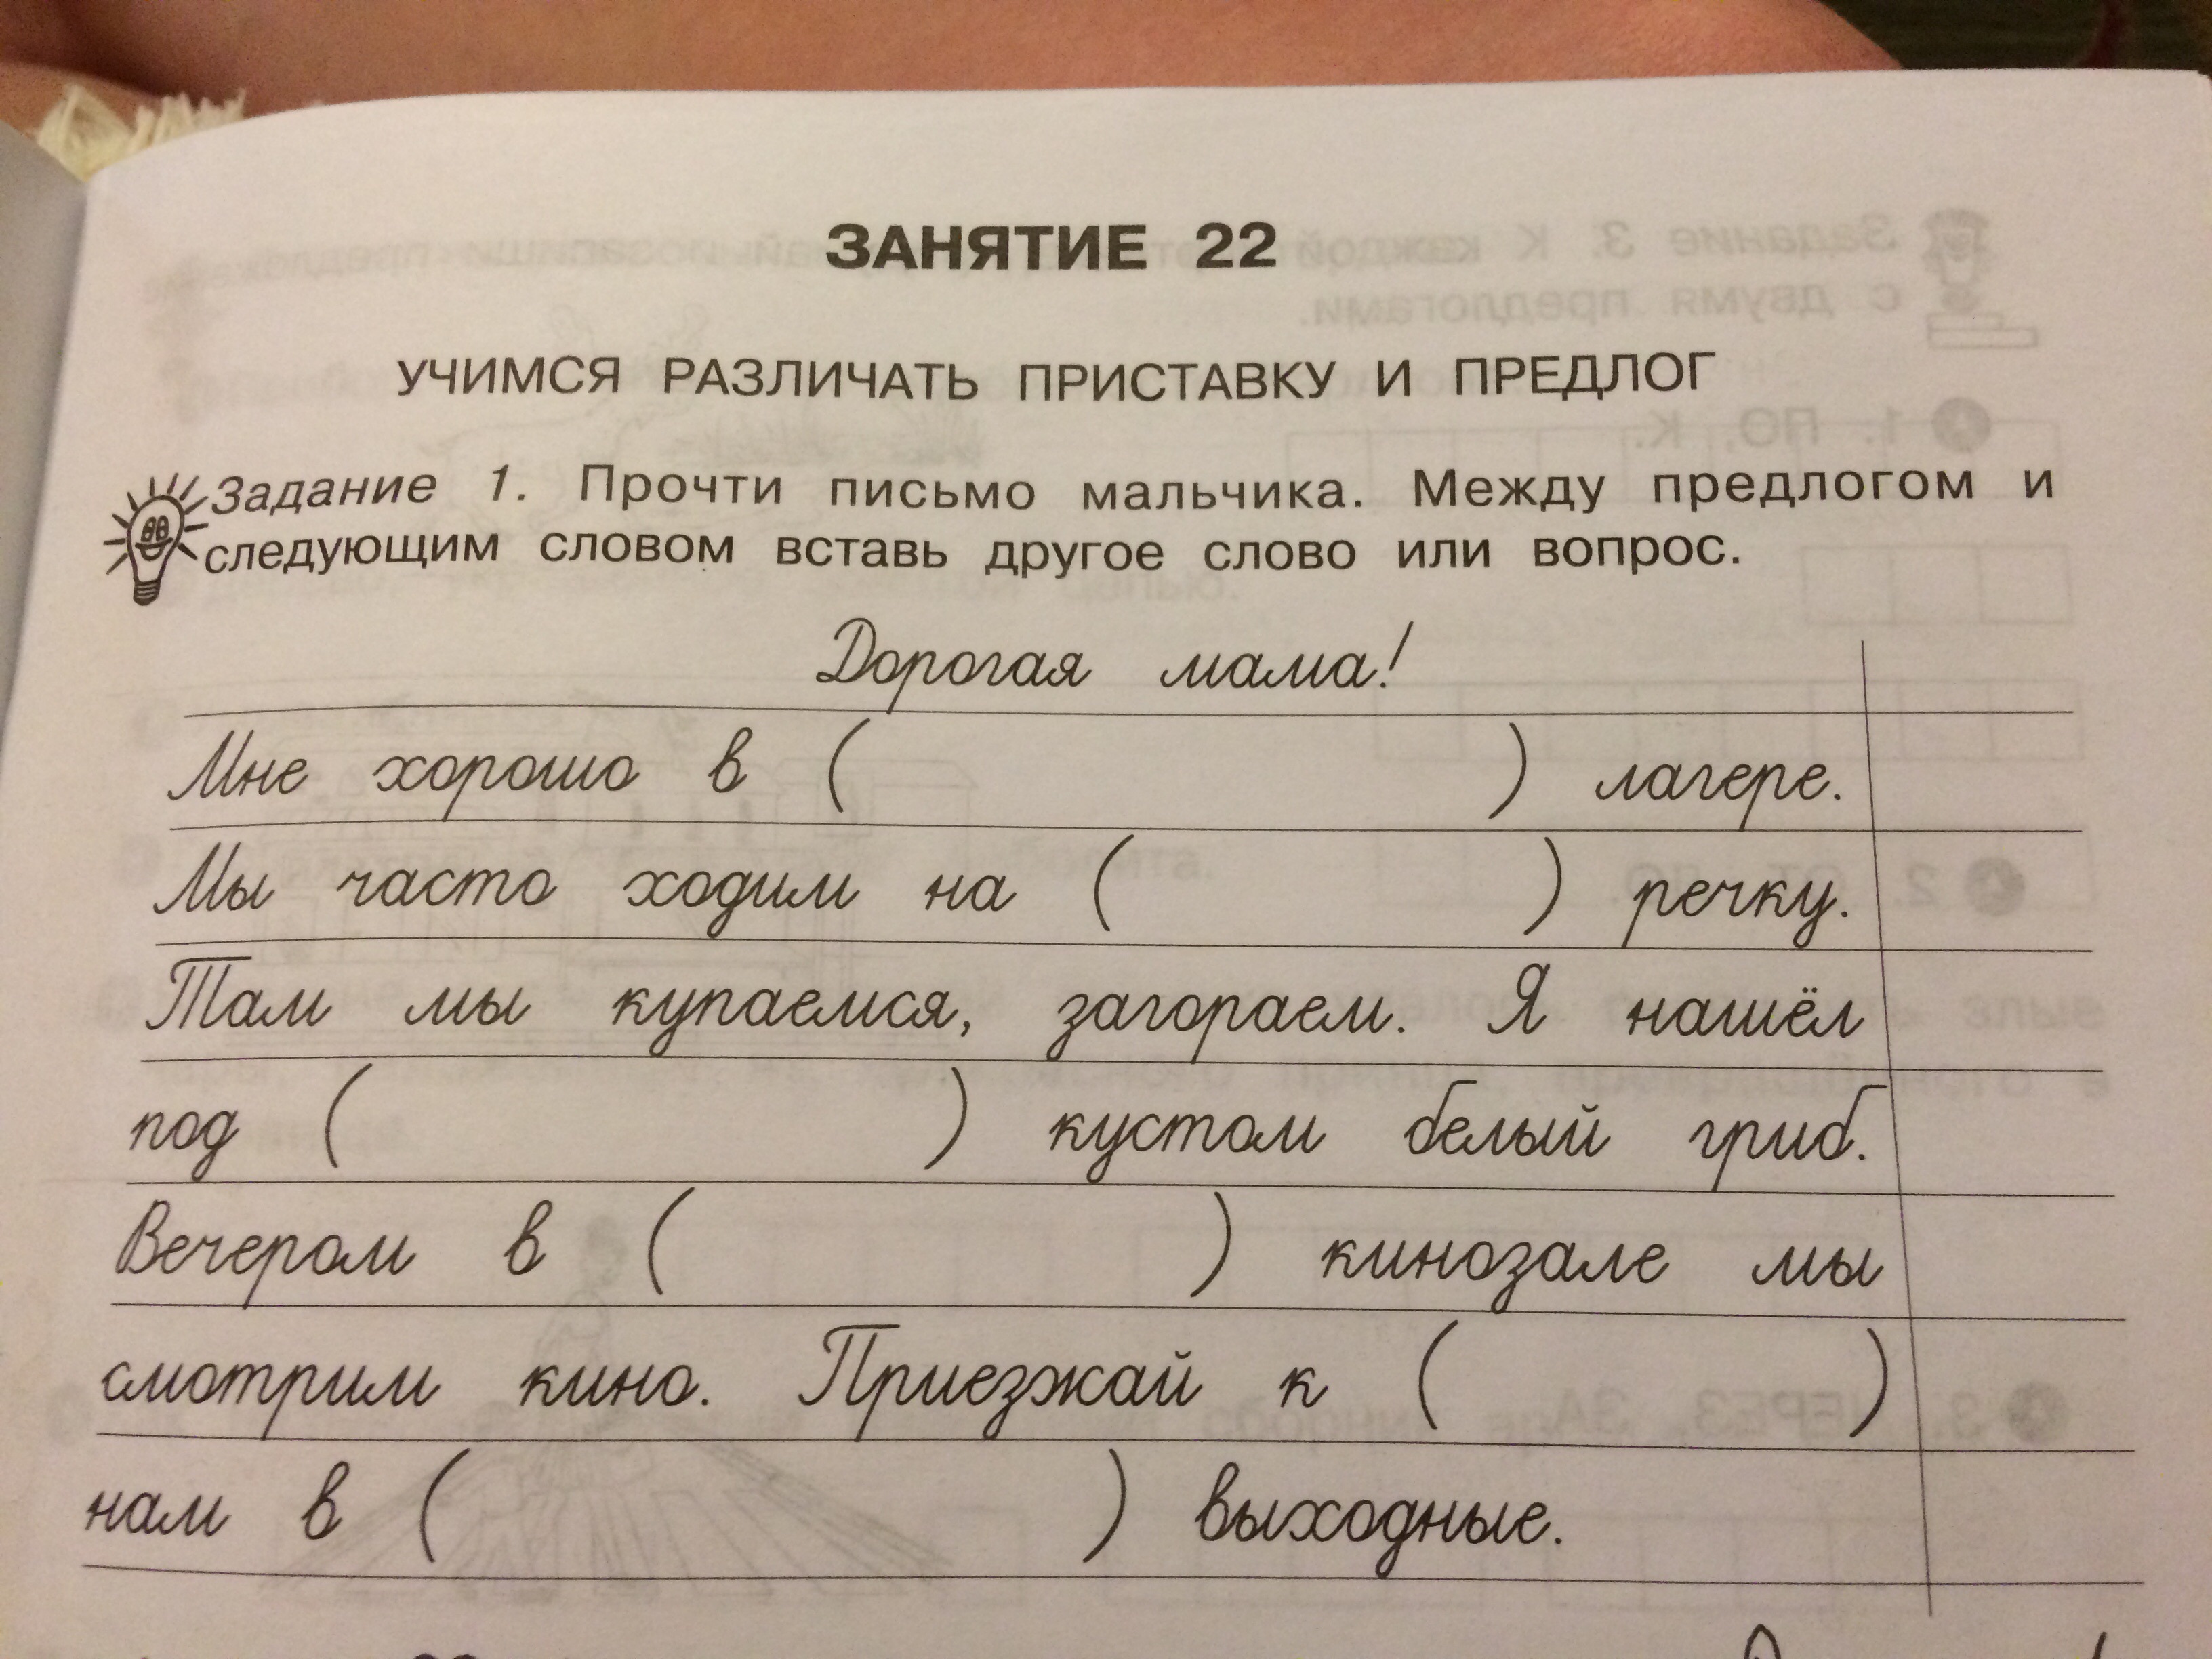 ЗАНЯТИЕ 22
УЧИМСЯ РАЗЛИЧАТЬ ПРИСТАВКУ И ПРЕДЛОГ
Задание 1. Прочти письмо мальчика. Между предлогом и
следующим словом вставь другое слово или вопрос.
Дорогая мама!
Мне хорошо в ( ) лагере.
Мы часто ходим на ( ) речку.
Там мы купаемся, загораем. Я нашёл
под ( ) кустом белый гриб.
Вечером в ( ) кинозале мы
смотрим кино. Приезжай к ( )
нам в ( ) выходные.